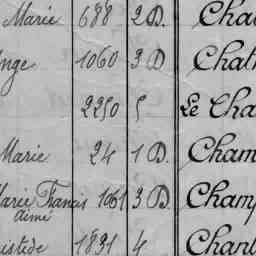 Marie 688 2 D. Cha
nge 1060 3 D Chat
2250 5 Le Cha
Marie 24 1 D. Cham
Marie Francis 1061 3 D. Champ
Aimé
istide 1831 4 Chant